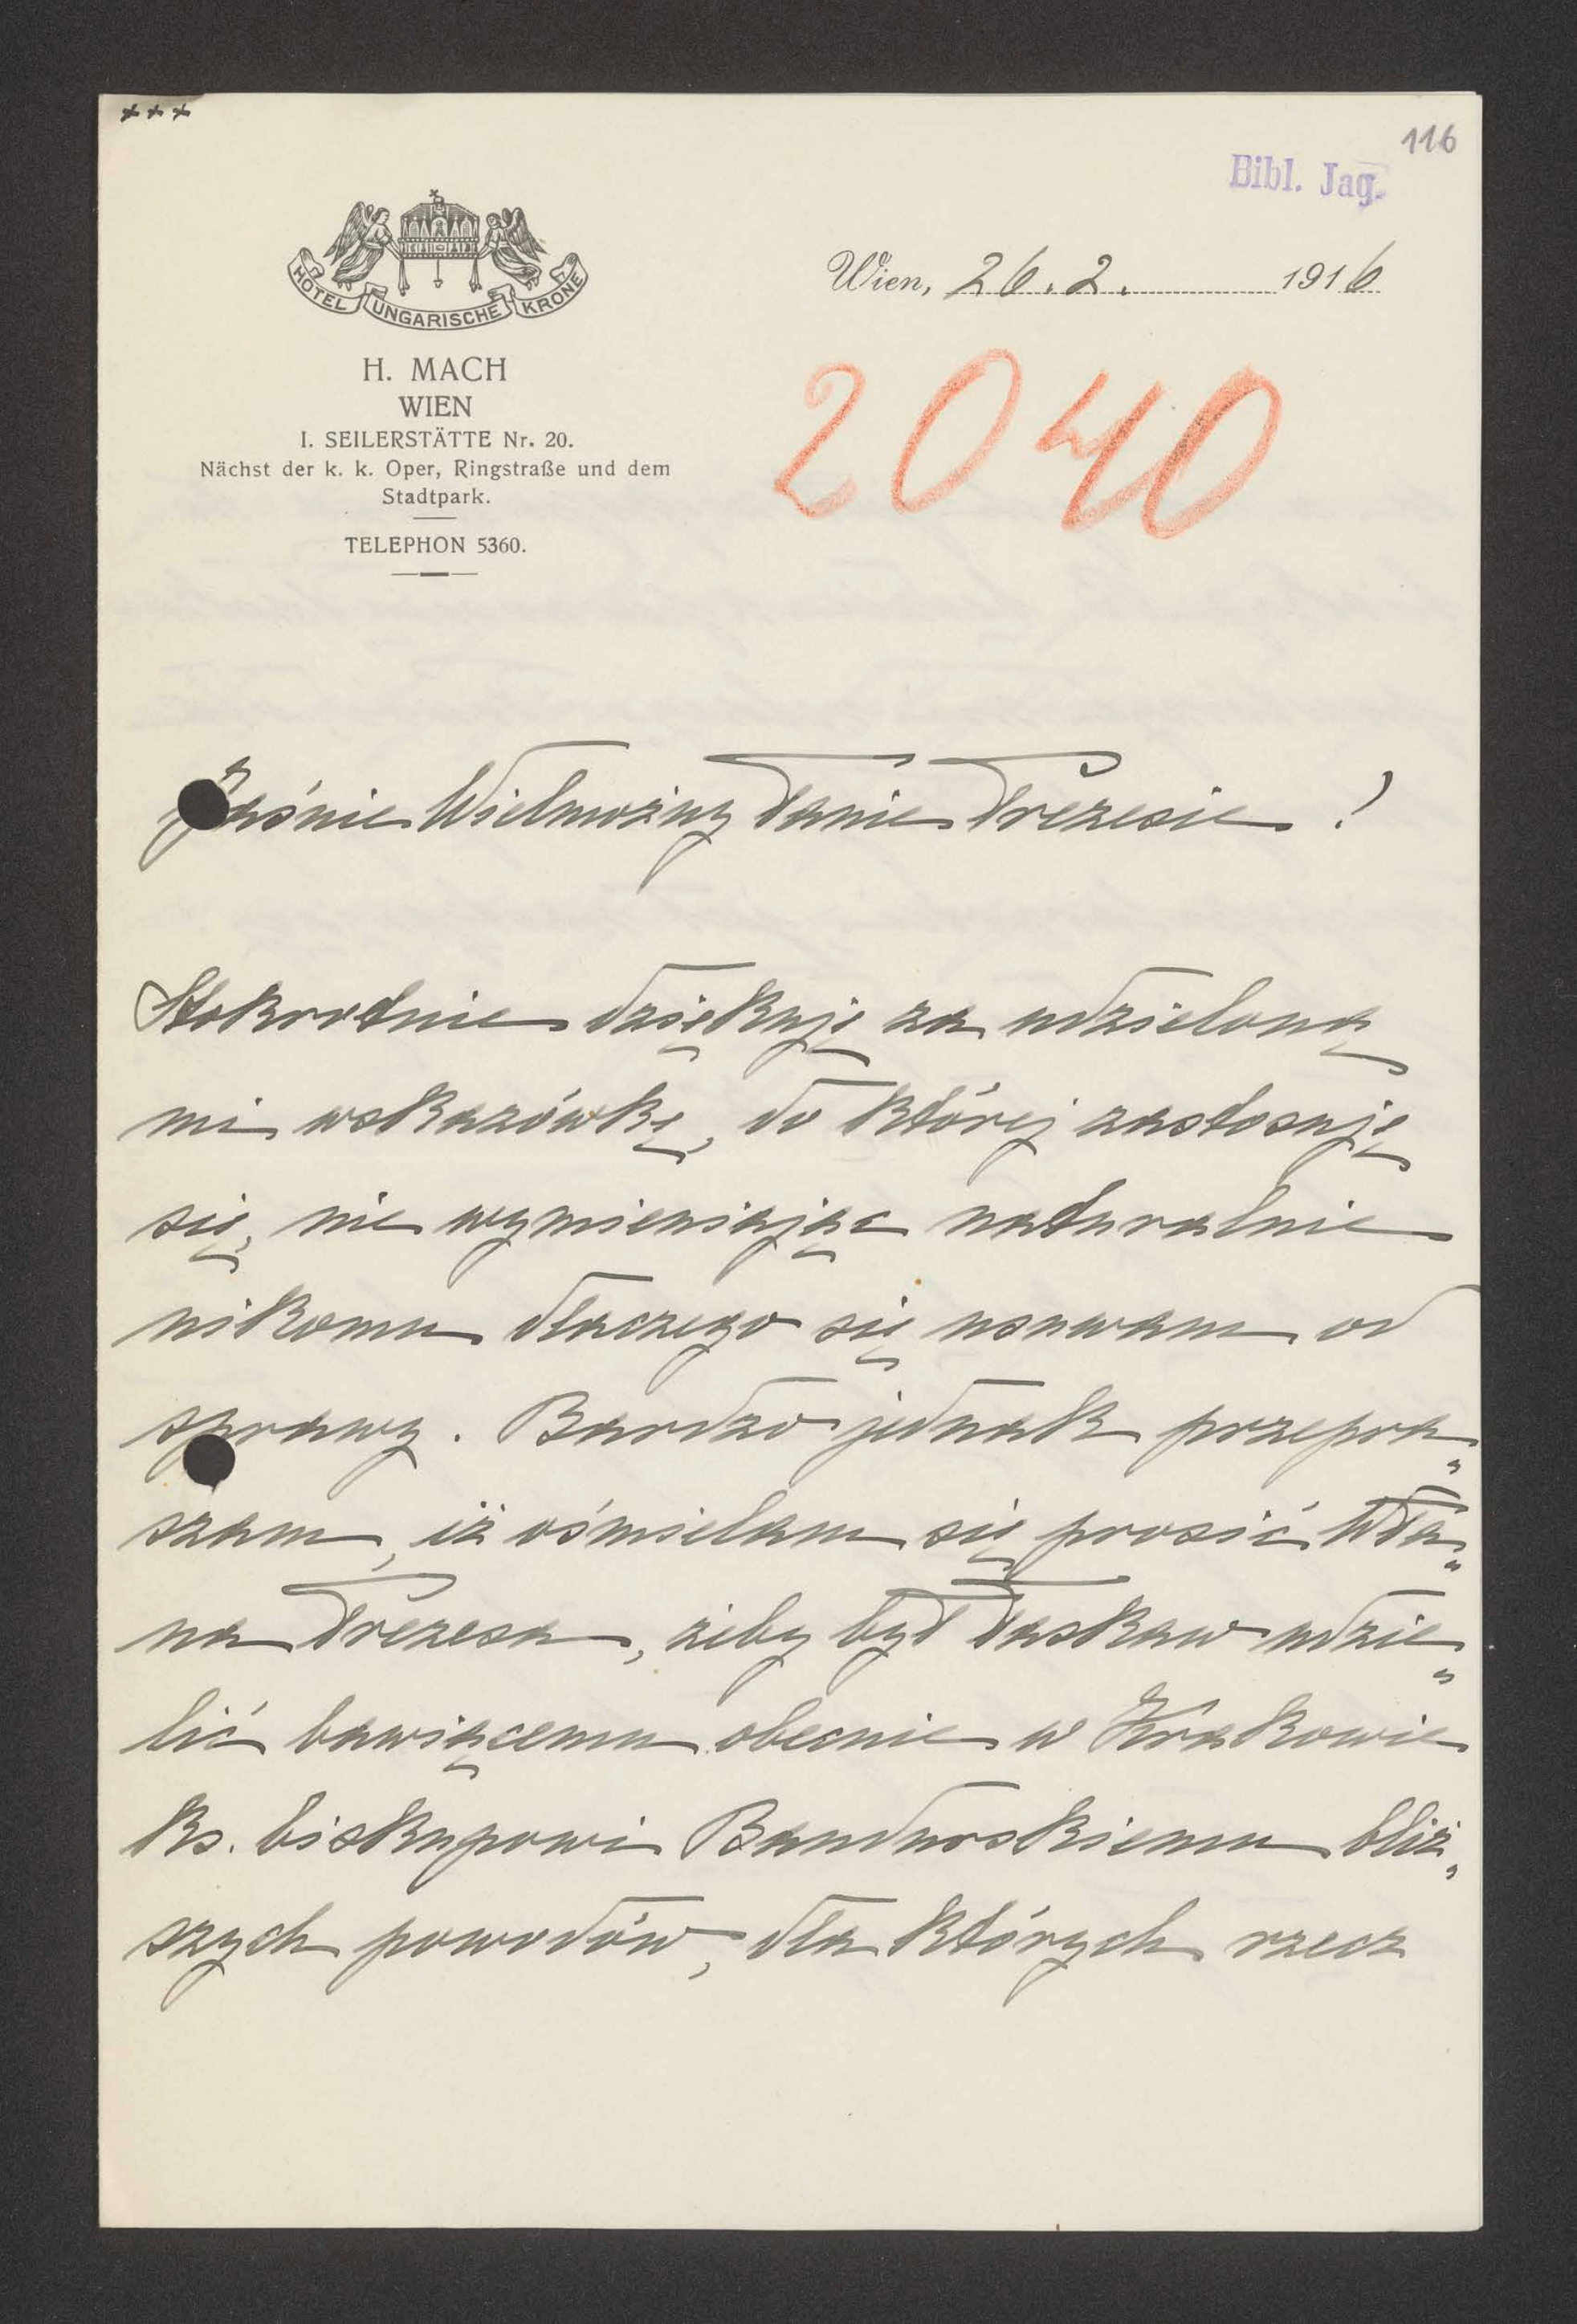 +++
116
Bibl. Jag.
HOTEL UNGARISCHE KRONE
Wien, 26.2. 1916
H. MACH
WIEN
I. SEILERSTÄTTE Nr. 20.
Nächst der k. k. Oper, Ringstraße und dem
Stadtpark.
TELEPHON 5360.
2040
Jaśnie Wielmożny Panie Prezesie!
Stokrotnie dziękuję za udzieloną
mi wskazówkę, do której zastosuję
się, nie wymieniając naturalnie
nikomu dlaczego się usuwam od
sprawy. Bardzo jednak przepra„
szam, iż ośmielam się prosić WPa„
na Prezesa, żeby był łaskaw udzie„
lić bawiącemu obecnie w Krakowie
ks. biskupowi Bandurskiemu bliż„
szych powodów, dla których rzecz